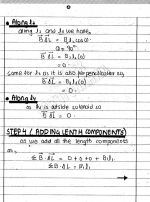 • Along L2
along L2 and L4 we have
B·ΔL = B2L2 cos θ
θ = 90°
B·ΔL = B2L2(0)
= 0
same for L4 as it is also perpendicular so,
B·ΔL = B4L4(0)
= 0.
• Along L3
as L3 is outside solenoid so
B·ΔL = 0.
STEP 4 (ADDING LENTH COMPONENTS)
as we add all the length components
as,
ΣB·ΔL = 0+0+0+B1L1
ΣB·ΔL = B1L1